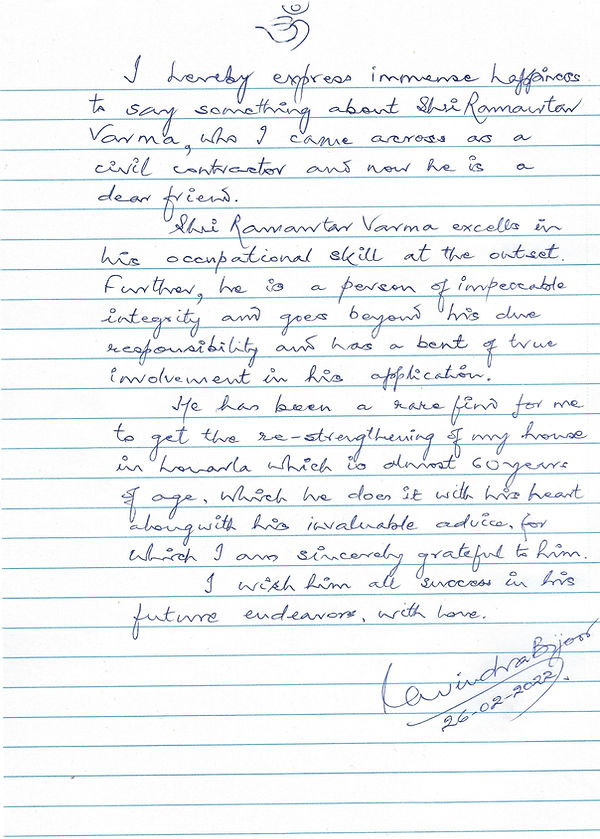 ॐ
I hereby express immense happiness
to say something about Shri Ramavtar
Varma, who I came across as a
civil contractor and now he is a
dear friend.
Shri Ramavtar Varma excells in
his occupational skill at the outset.
Further, he is a person of impeccable
integrity and goes beyond his due
responsibility and has a bent of true
involvement in his application.
He has been a rare find for me
to get the re-strengthening of my house
in which is almost 60 years
of age. which he does it with his heart
alongwith his invaluable advice, for
which I am sincerely grateful to him.
I wish him all success in his
future endeavors. with love.
Bijoor
26-02-2022.